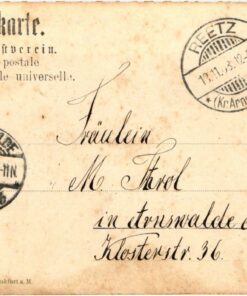 karte.
stverein.
postale
le universelle.
REETZ
*(Kr.Arn
Fräulein
M. Throl
in Arnswalde
Klosterstr. 36.
nkfurt a. M.